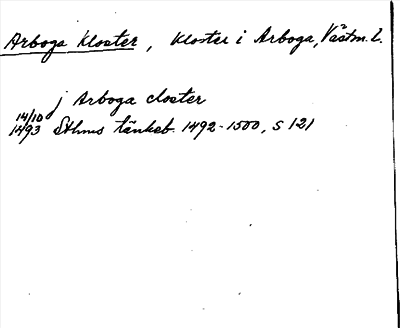 Arboga Kloster, Kloster i Arboga, Västm. l.
j Arboga closter
14/10
1493 Sthms tänkeb. 1492-1500, S 121